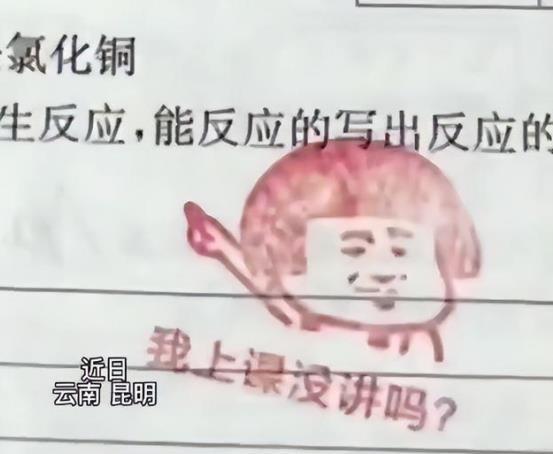 氯化铜
生反应,能反应的写出反应的
我上课没讲吗?
近日
云南 昆明